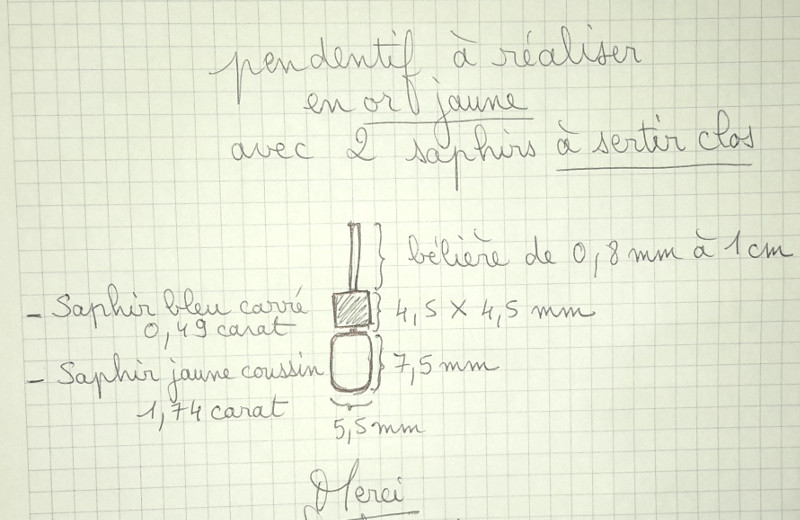 pendentif à réaliser
en or jaune
avec 2 saphirs à sertir clos
bélière de 0,8 mm à 1 cm
- Saphir bleu carré
0,49 carat
4,5 X 4,5 mm
- Saphir jaune coussin
1,74 carat
7,5 mm
5,5 mm
Merci